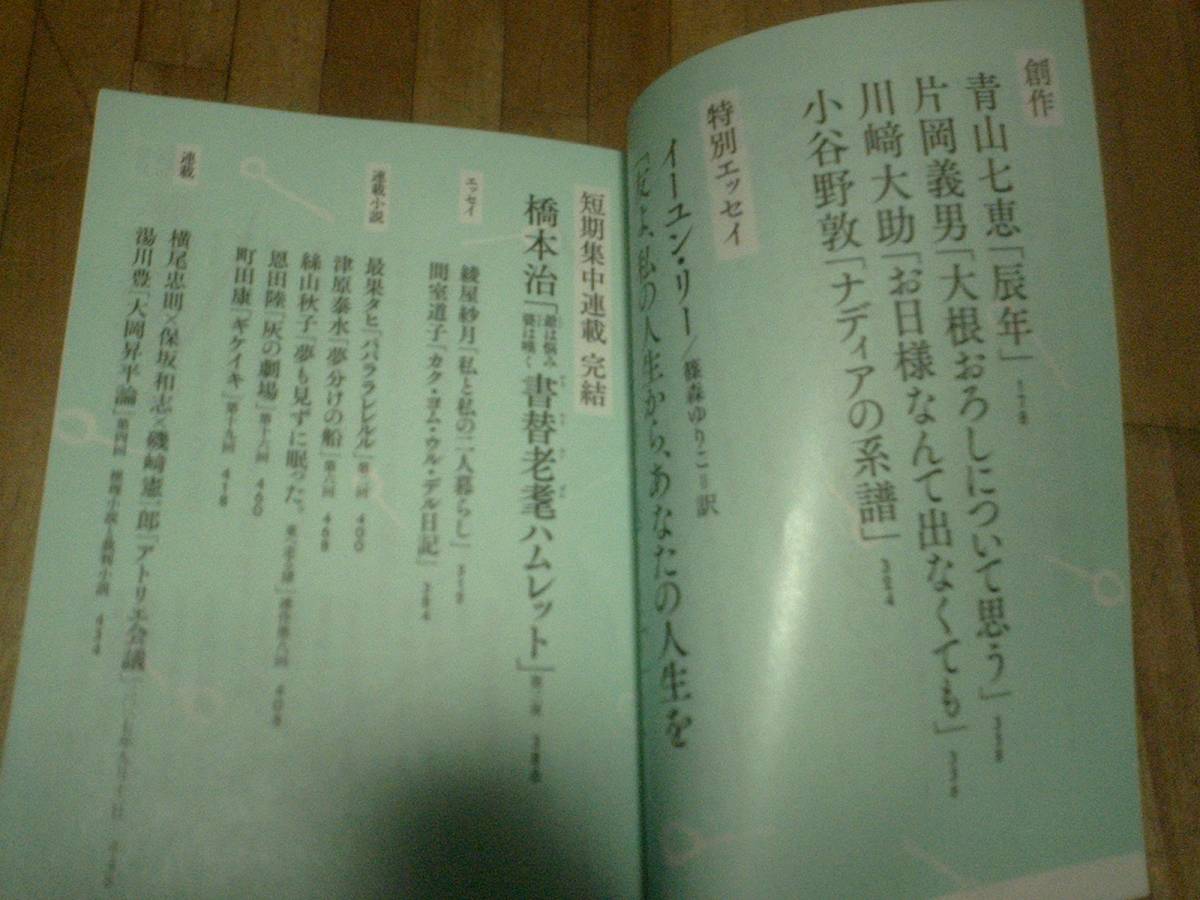 創作
青山七恵「辰年」178
片岡義男「大根おろしについて思う」
川﨑大助「お日様なんて出なくても」
小谷野敦「ナディアの系譜」
特別エッセイ
イーユン・リー/篠森ゆりこ=訳
「友よ、私の人生から、あなたの人生を
短期集中連載 完結
橋本治「書替老耄ハムレット」
エッセイ
綾屋紗月「私と私の二人暮らし」
間室道子「カク・ヨム・ウル・デル日記」384
連載小説
最果タヒ「パパララレレルル」400
津原泰水「夢分けの船」第六回 468
絲山秋子「夢も見ずに眠った。」408
恩田陸「灰の劇場」第十六回 460
町田康「ギケイキ」第十九回 418
連載
横尾忠則×保坂和志×磯﨑憲一郎「アトリエ会議」
湯川豊「大岡昇平論」第四回 434